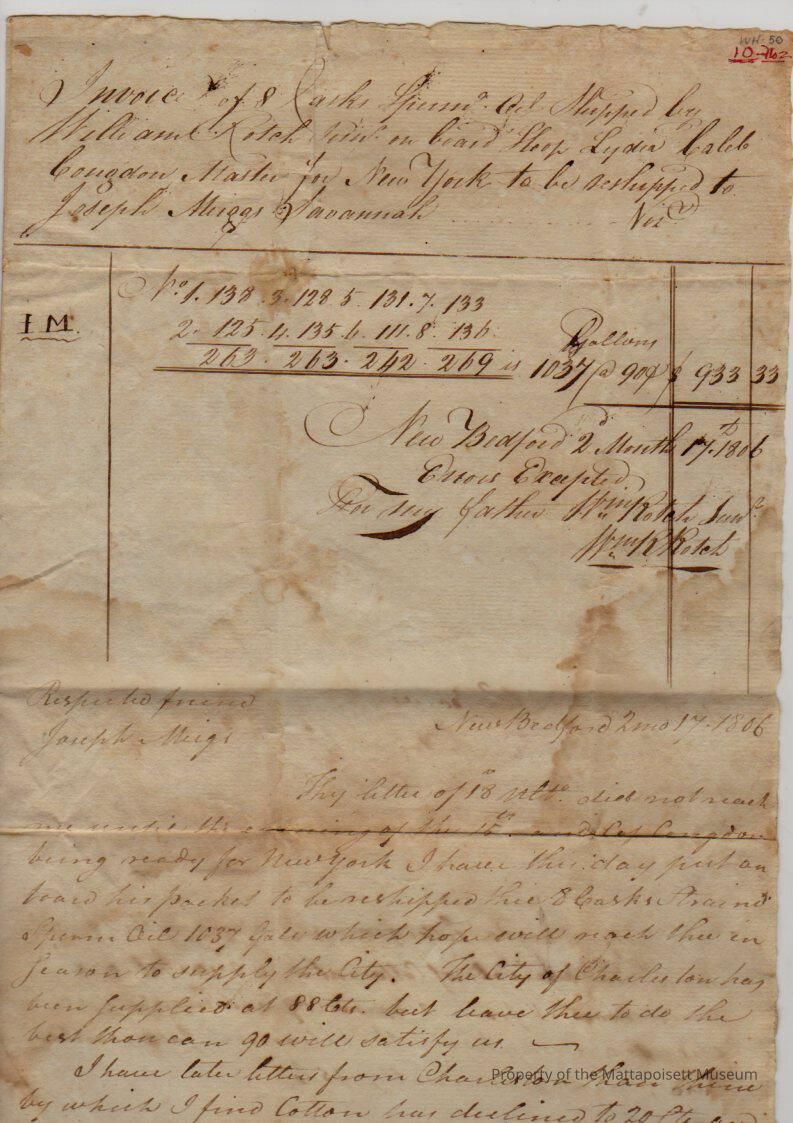 WH-50
10-762
Invoice of 8 Casks Sperm. Oil Shipped by
William Rotch Junr. on board Sloop Lydia Caleb
Congdon Master for New York to be reshipped to
Joseph Meiggs Savannah Vizt
I M.
No. 1. 138. 3. 128 5. 131. 7. 133
2. 125. 4. 135. 6. 111. 8. 136
Gallons
263. 263. 242. 269 is 1037 @ 90¢ $ 933 33
New Bedford 2d Month 17th 1806
Errors Excepted
For my father Wm Rotch Junr
Wm R Rotch
Respected friend
New Bedford 2 mo 17. 1806
Joseph Meigs
Thy letter of 18th Ulto. did not reach
me until the evening of the 15th. and Cap Congdon
being ready for New York I have this day put on
board his packet to be reshipped thee 8 Casks Strained
Sperm Oil 1037 Galls which hope will reach thee in
Season to supply the City. The City of Charleston has
been supplied at 88 Cts. but leave thee to do the
best thou can 90 will satisfy us.
I have later letters from Charleston than thine
by which I find Cotton has declined to 20 Cts and
Property of the Mattapoisett Museum